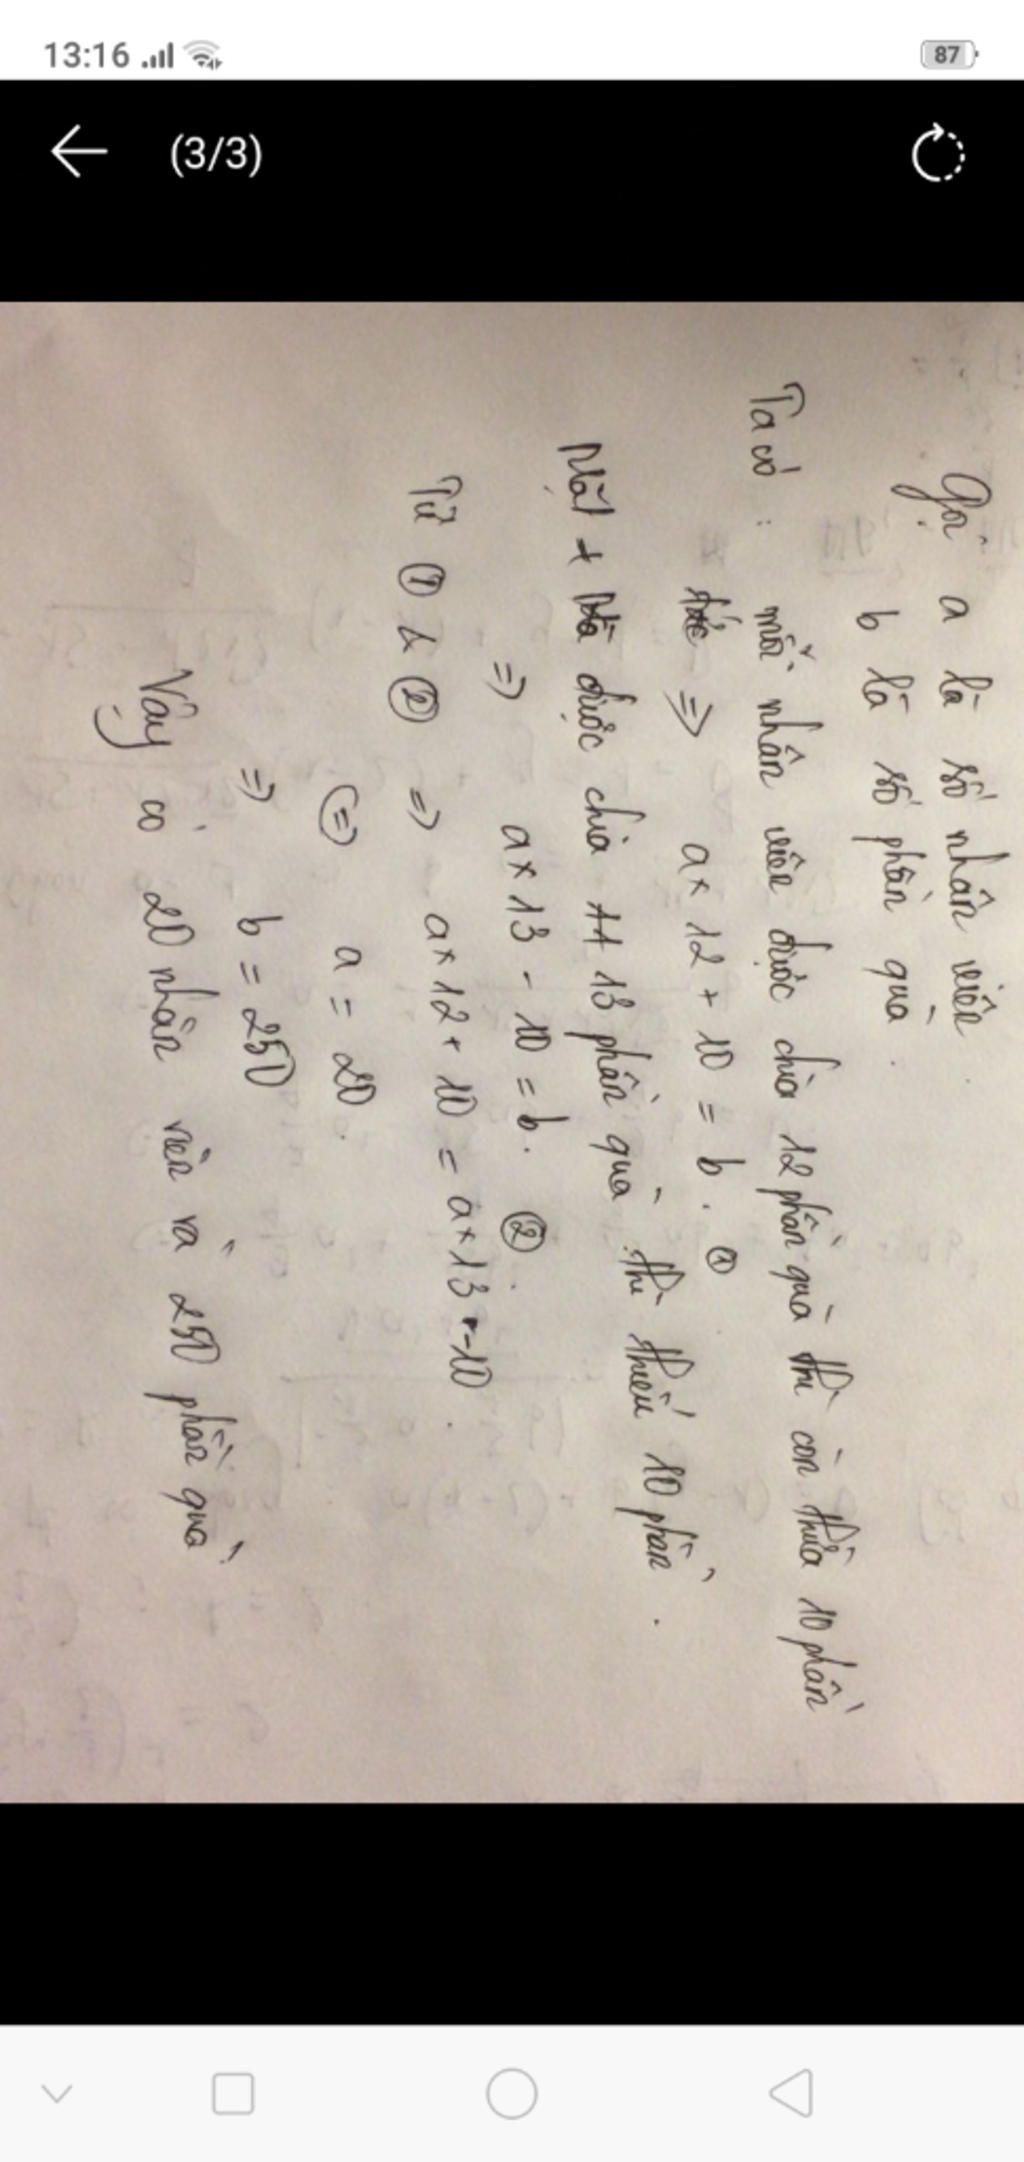 13:16
87
(3/3)
Gọi a là số nhân viên.
b là số phần quà.
Ta có: mỗi nhân viên được chia 12 phần quà thì còn thừa 10 phần
=> a × 12 + 10 = b. ①
Mặt + được chia 13 phần quà thì thiếu 10 phần.
=> a × 13 - 10 = b. ②.
Từ ① & ② => a × 12 + 10 = a × 13 - 10.
(=) a = 20.
=> b = 250
Vậy có 20 nhân viên và 250 phần quà